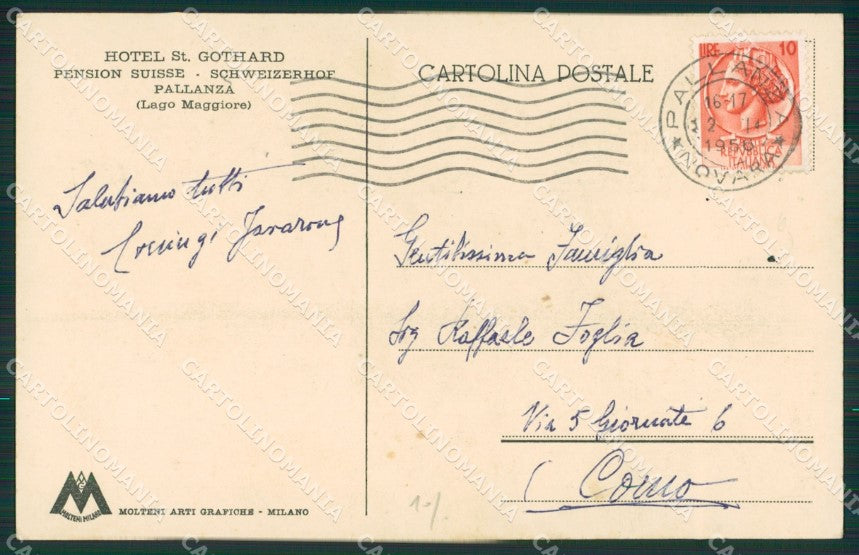 HOTEL St. GOTHARD
PENSION SUISSE - SCHWEIZERHOF
PALLANZA
(Lago Maggiore)
CARTOLINA POSTALE
LIRE 10
PALLANZA
16-17
1956
NOVARA
REPUBBLICA
ITALIANA
Salutiamo tutti
Gentilissima Famiglia
Sig Raffaele Foglia
Via 5 Giornate 6
Como
MOLTENI MILANO
MOLTENI ARTI GRAFICHE - MILANO
CARTOLINOMANIA